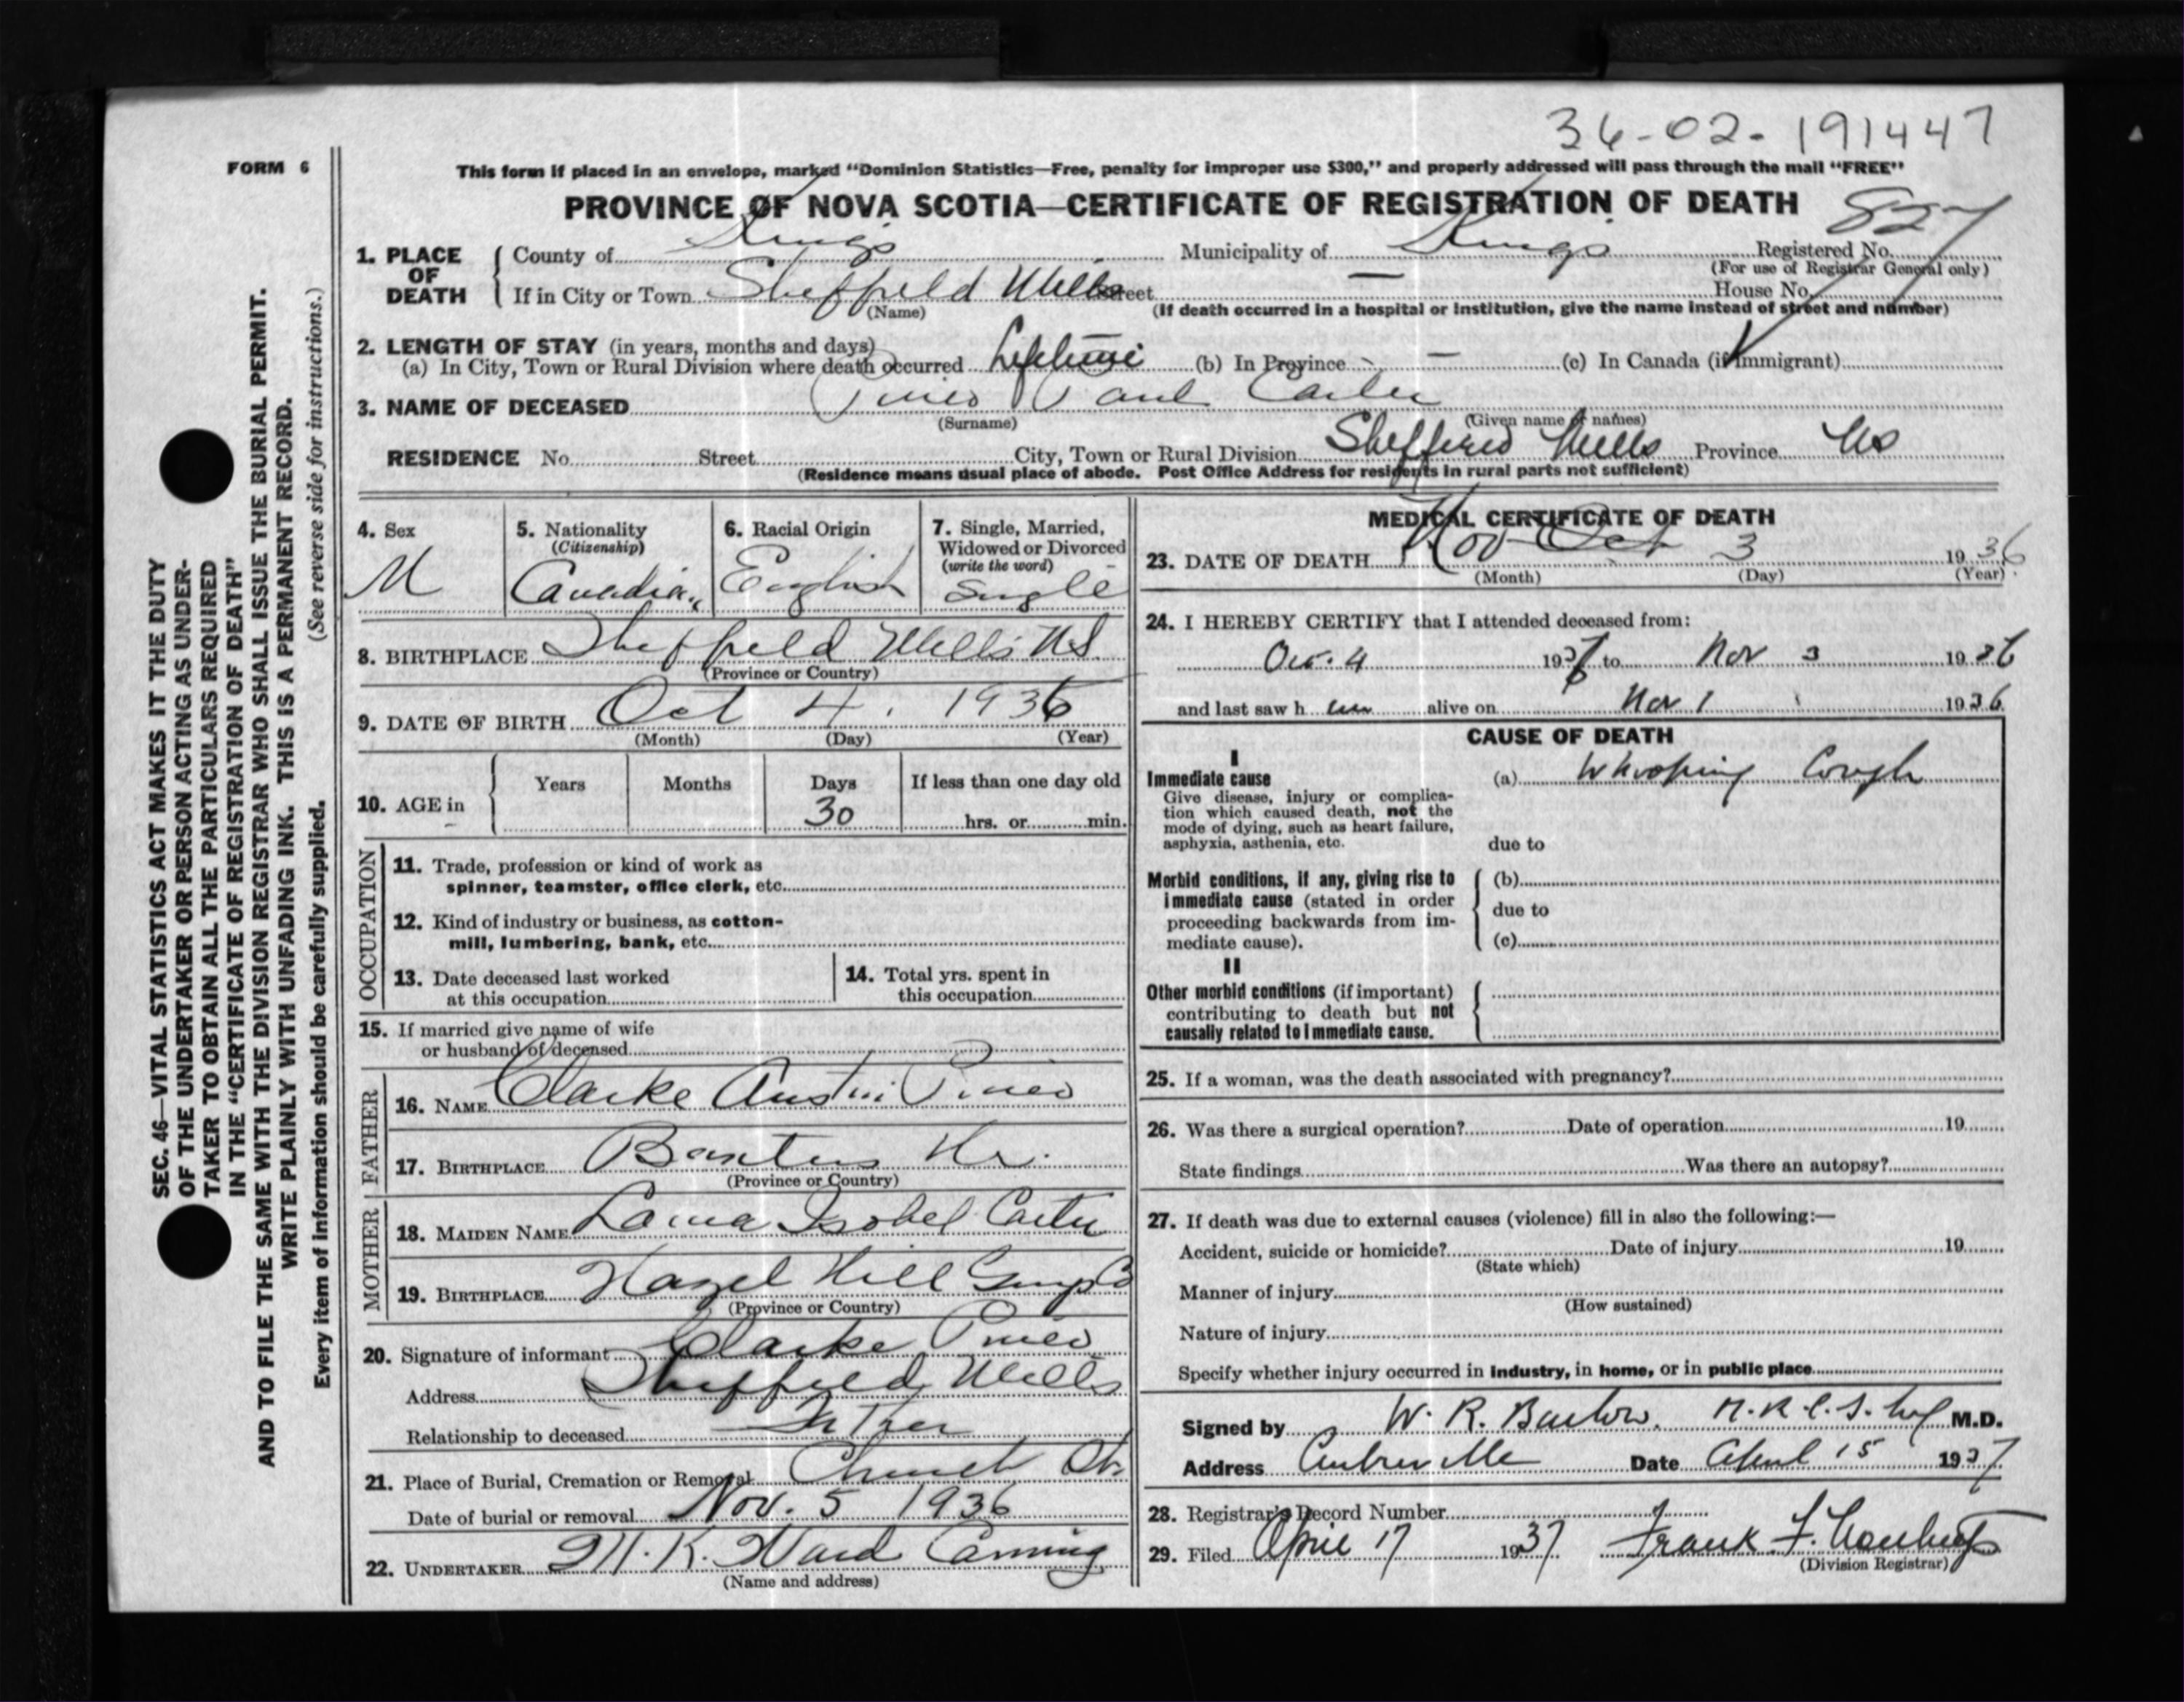 36-02-191447
FORM 6
This form if placed in an envelope, marked "Dominion Statistics—Free, penalty for improper use $300," and properly addressed will pass through the mail "FREE"
PROVINCE OF NOVA SCOTIA—CERTIFICATE OF REGISTRATION OF DEATH
827
1. PLACE OF DEATH
County of Kings Municipality of Kings Registered No.
(For use of Registrar General only)
If in City or Town Sheffield Mills Street — House No.
(Name) (If death occurred in a hospital or institution, give the name instead of street and number)
2. LENGTH OF STAY (in years, months and days)
(a) In City, Town or Rural Division where death occurred Lifetime (b) In Province — (c) In Canada (if immigrant)
3. NAME OF DECEASED Pineo Paul Carter
(Surname) (Given name or names)
RESIDENCE No. Street City, Town or Rural Division Sheffield Mills Province NS
(Residence means usual place of abode. Post Office Address for residents in rural parts not sufficient)
4. Sex
M
5. Nationality
(Citizenship)
Canadian
6. Racial Origin
English
7. Single, Married,
Widowed or Divorced
(write the word)
Single
8. BIRTHPLACE Sheffield Mills NS.
(Province or Country)
9. DATE OF BIRTH Oct 4, 1936
(Month) (Day) (Year)
10. AGE in
Years Months Days If less than one day old
30 hrs. or min.
OCCUPATION
11. Trade, profession or kind of work as
spinner, teamster, office clerk, etc.
12. Kind of industry or business, as cotton-
mill, lumbering, bank, etc.
13. Date deceased last worked
at this occupation
14. Total yrs. spent in
this occupation
15. If married give name of wife
or husband of deceased
FATHER
16. NAME Clarke Austin Pineo
17. BIRTHPLACE Baxters Hr.
(Province or Country)
MOTHER
18. MAIDEN NAME Isobel Carter
19. BIRTHPLACE Hazel Hill
(Province or Country)
20. Signature of informant Clarke Pineo
Address Sheffield Mills
Relationship to deceased Father
21. Place of Burial, Cremation or Removal Church St.
Date of burial or removal Nov. 5 1936
22. UNDERTAKER K. Ward Canning
(Name and address)
MEDICAL CERTIFICATE OF DEATH
23. DATE OF DEATH Nov Oct 3 1936
(Month) (Day) (Year)
24. I HEREBY CERTIFY that I attended deceased from:
Oct. 4 1936 to Nov 3 1936
and last saw h im alive on Nov 1 1936
CAUSE OF DEATH
I
Immediate cause
Give disease, injury or complica-
tion which caused death, not the
mode of dying, such as heart failure,
asphyxia, asthenia, etc.
(a) Whooping Cough
due to
Morbid conditions, if any, giving rise to
immediate cause (stated in order
proceeding backwards from im-
mediate cause).
(b)
due to
(c)
II
Other morbid conditions (if important)
contributing to death but not
causally related to immediate cause.
25. If a woman, was the death associated with pregnancy?
26. Was there a surgical operation? Date of operation 19
State findings Was there an autopsy?
27. If death was due to external causes (violence) fill in also the following:—
Accident, suicide or homicide? Date of injury 19
(State which)
Manner of injury
(How sustained)
Nature of injury
Specify whether injury occurred in industry, in home, or in public place
Signed by W. R. Barlow. M.R.C.S. M.D.
Address Centreville Date April 15 1937
28. Registrar's Record Number
29. Filed April 17 1937 Frank F.
(Division Registrar)
SEC. 46—VITAL STATISTICS ACT MAKES IT THE DUTY
OF THE UNDERTAKER OR PERSON ACTING AS UNDER-
TAKER TO OBTAIN ALL THE PARTICULARS REQUIRED
IN THE "CERTIFICATE OF REGISTRATION OF DEATH"
AND TO FILE THE SAME WITH THE DIVISION REGISTRAR WHO SHALL ISSUE THE BURIAL PERMIT.
WRITE PLAINLY WITH UNFADING INK. THIS IS A PERMANENT RECORD.
Every item of information should be carefully supplied. (See reverse side for instructions.)